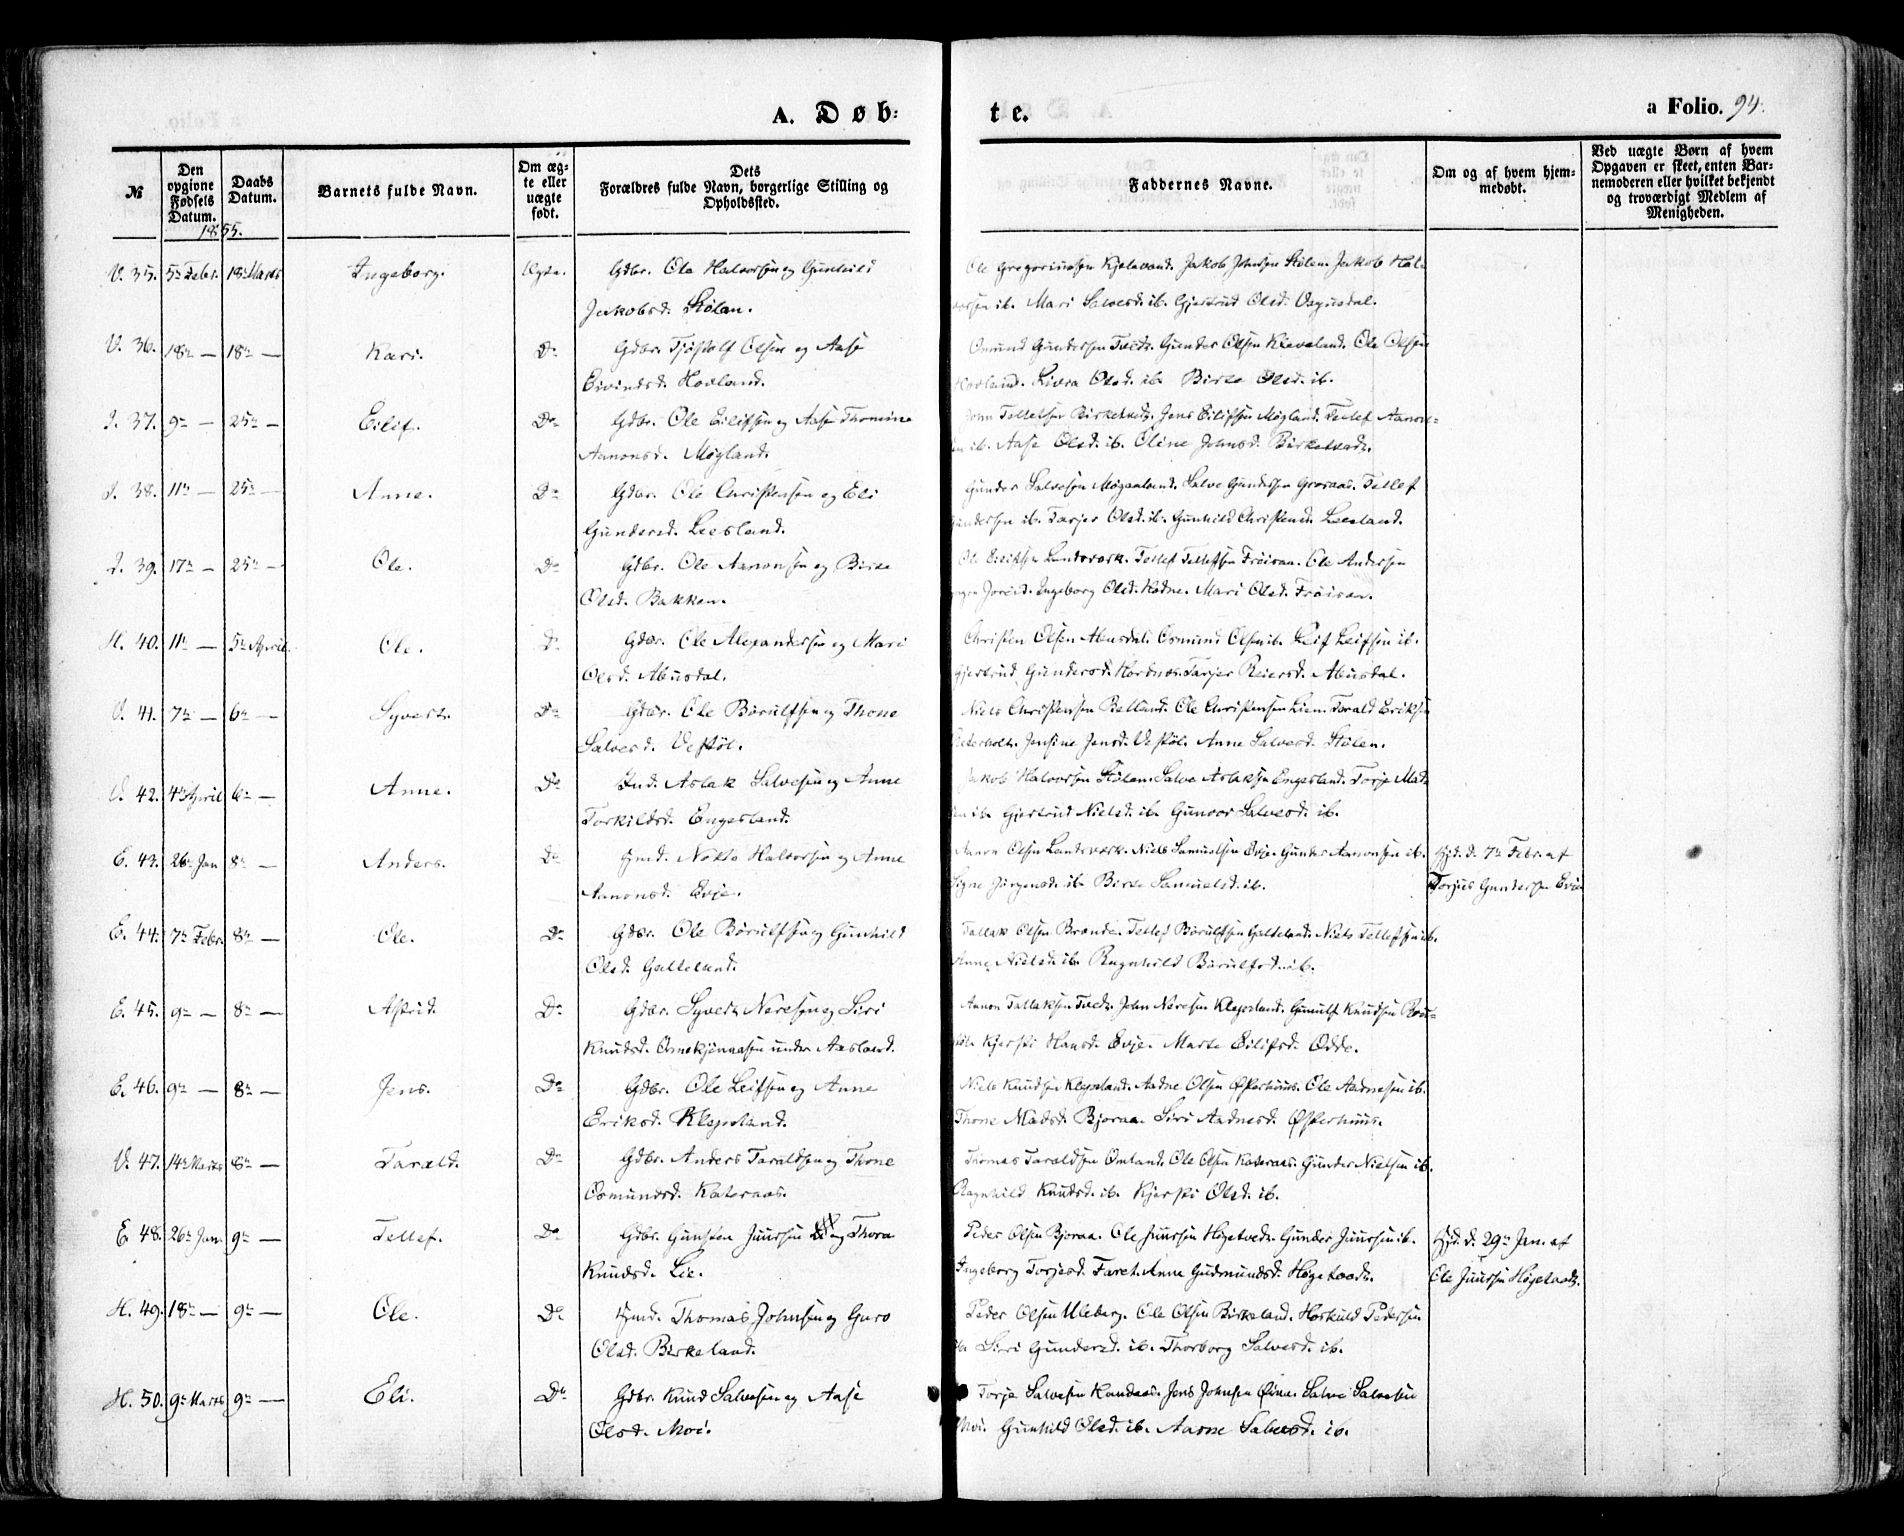 A. Døb:
te.
a Folio. 94.
№
Den opgivne Fødsels Datum.
Daabs Datum.
Barnets fulde Navn.
Om ægte eller uægte født.
Dets Forældres fulde Navn, borgerlige Stilling og Opholdssted.
Faddernes Navne.
Om og af hvem hjemmedøbt.
Ved uægte Børn af hvem Opgaven er skeet, enten Barnemoderen eller hvilket bekjendt og troværdigt Medlem af Menigheden.
1855.
V. 35. 5te Febr. 18de Marts Ingeborg. Ægte. Gdbr. Ole Halvorsen og Gunhild
Jakobsd. Stølen.
Ole Gregoriussen Kjetevand. Jakob Johnsen Stølen. Jakob Hal-
vorsen ib. Mari Salvesd. ib. Gjertrud Olsd. Vegusdal.
V. 36. 18de — 18de — Kari. Do Gdbr. Tjøstolf Olsen og Aase
Eivindsd. Hovland.
Omund Gundersen Tvedt. Gunder Olsen Kleveland. Ole Olsen
Hovland. Livra Olsd. ib. Birte Olsd. ib.
I. 37. 9de — 25de — Eilif. Do Gdbr. Ole Eilifsen og Aase Thomine
Aanonsd. Møgland.
John Tellefsen Birketvedt. Jens Eilifsen Møgland. Tellef Aanon-
sen ib. Aase Olsd. ib. Oline Johnsd. Birketvedt.
I. 38. 11te — 25de — Anne. Do Gdbr. Ole Christensen og Eli
Gundersd. Leesland.
Gunder Salvesen Møgaaland. Salve Gundersen Grosaas. Tellef
Gundersen ib. Tarjer Olsd. ib. Gunhild Christensd. Leesland.
I. 39. 17de — 25de — Ole. Do Gdbr. Ole Aanonsen og Birte
Olsd. Bakken.
Ole Eilifsen Landsverk. Tellef Tellefsen Frøisan. Ole Andersen
Joreid. Ingeborg Olsd. Kadne. Mari Olsd. Frøisan.
H. 40. 11te — 5te April Ole. Do Gdbr. Ole Alexandersen og Mari
Olsd. Abusdal.
Christen Olsen Abusdal. Osmund Olsen ib. Leif Leifsen ib.
Gjertrud Gundersd. Hordnes. Tarjer Reiersd. Abusdal.
V. 41. 7de — 6te — Syvert. Do Gdbr. Ole Børulfsen og Thone
Salvesd. Vestøl.
Niels Christensen Retland. Ole Christensen Lien. Tarald Eriksen
Jensine Jensd. Vestøl. Anne Salvesd. Stølen.
V. 42. 4de April 6te — Anne. Do Ind. Aslak Salvesen og Anne
Torkildsd. Engesland.
Jakob Halvorsen Stølen. Salve Aslaksen Engesland. Torje Mad-
sen ib. Gjertrud Nielsd. ib. Gunvor Salvesd. ib.
E. 43. 26de Jan 8de — Anders. Do Hmd. Nokto Halvorsen og Anne
Aanonsd. Evje.
Aanon Olsen Landsverk. Niels Samuelsen Evje. Gunder Aanonsen ib.
Signe Jørgensd. ib. Birte Samuelsd. ib.
Hjd. d. 7de Febr. af
Torjus Gundersen Evje
E. 44. 7de Febr. 8de — Ole. Do Gdbr. Ole Børulfsen og Gunhild
Olsd. Galteland.
Tallak Olsen Brande. Tellef Børulfsen Galteland. Niels Tellefsen ib.
Anne Nielsd. ib. Ragnhild Børulfsd. ib.
E. 45. 9de — 8de — Astrid. Do Gdbr. Syvert Neresen og Siri
Knudsd. Omekjennaasen under Aasland.
Aanon Tallaksen Tvedt. John Neresen Klepsland. Gunulf Knudsen Røi-
støl. Kjersti Hansd. Evje. Marte Eilifsd. Odde.
E. 46. 9de — 8de — Jens. Do Gdbr. Ole Leifsen og Anne
Eriksd. Klepsland.
Niels Knudsen Klepsland. Aadne Olsen Østerhuus. Ole Aadnesen ib.
Thone Madsd. Bjoraa. Siri Aadnesd. Østerhuus.
V. 47. 14de Marts 8de — Tarald. Do Gdbr. Anders Taraldsen og Thone
Osmundsd. Kateraas.
Thomas Taraldsen Omland. Ole Olsen Kateraas. Gunder Nielsen ib.
Ragnhild Knudsd. ib. Kjersti Olsd. ib.
E. 48. 26de Jan. 9de — Tellef. Do Gdbr. Gunsten Juursen og Thora
Knudsd. Lie.
Peder Olsen Bjoraa. Ole Juursen Høgetvedt. Gunder Juursen ib.
Ingeborg Torjesd. Faret. Anne Gudmundsd. Høgetvedt.
Hjd. d. 29de Jan. af
Ole Juursen Høgetvedt.
H. 49. 18de — 9de — Ole. Do Hmd. Thomas Johnsen og Guro
Olsd. Birkeland.
Peder Olsen Uleberg. Ole Olsen Birkeland. Horkuld Pedersen
ib. Siri Gundersd. ib. Thorborg Salvesd. ib.
H. 50. 9de Marts 9de — Eli. Do Gdbr. Knud Salvesen og Aase
Olsd. Moi.
Torje Salvesen Kandaas. Jens Johnsen Øine. Salve Salvesen
Moi. Gunhild Olsd. ib. Aasne Salvesd. ib.